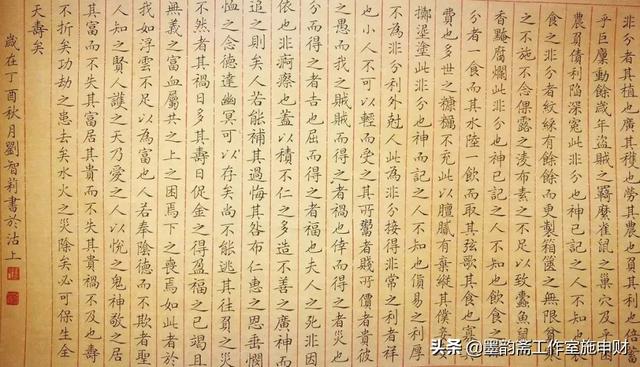 非分者其植也廣其穫也勞其農也負其利也倍蓄
乎巨廩動餘歲年盜賊之羇縻雀鼠之巢穴及乎困
農負債利陷深寃此非分也神已記之人不知也衣
食之非分者紋綵有餘餘而更製箱篋之無限貧
之不施不念倮露之凌布素之不足以致蠹魚鼠
香黦腐爛此非分也神已記之人不知也飲食之非
分者一食而其水陸一飲而取其弦歌其食也寡
費也多世之糠糲不充此以膻膩有棄縱其僕妾
擲埿塗此非分也神而記之人不知也貨易之利厚
不為非分利外尅人此為非分接得非常之利者祥
也小人不可以輕而受之其所鬻者賤所價者貴彼
之愚而我之賊賊而得之者禍也倖而得之者災也
分而得之者吉也屈而得之者福也夫人之死非因
依也非痾瘵也蓋以積不仁之多造不善之廣神而
追之則矣人若能補其過悔其咎布仁惠之恩垂憫
恤之念德達幽冥可以存矣尚不能逃其往負之災
不然者其禍日多其壽日促金之得盈福之已竭且
無義之富血屬共之上之困焉下之喪焉如此者於
我如浮雲不足以為富也人若奉陰德而不欺者聖
人知之賢人護之天乃愛之人以悅之鬼神敬之居
其富而不失其富居其貴而不失其貴禍不及也壽
不折矣攻劫之患去矣水火之災除矣必可保生全
天壽矣
歲在丁酉秋月劉智莉書於沽上
头条 @墨韵斋工作室施申财